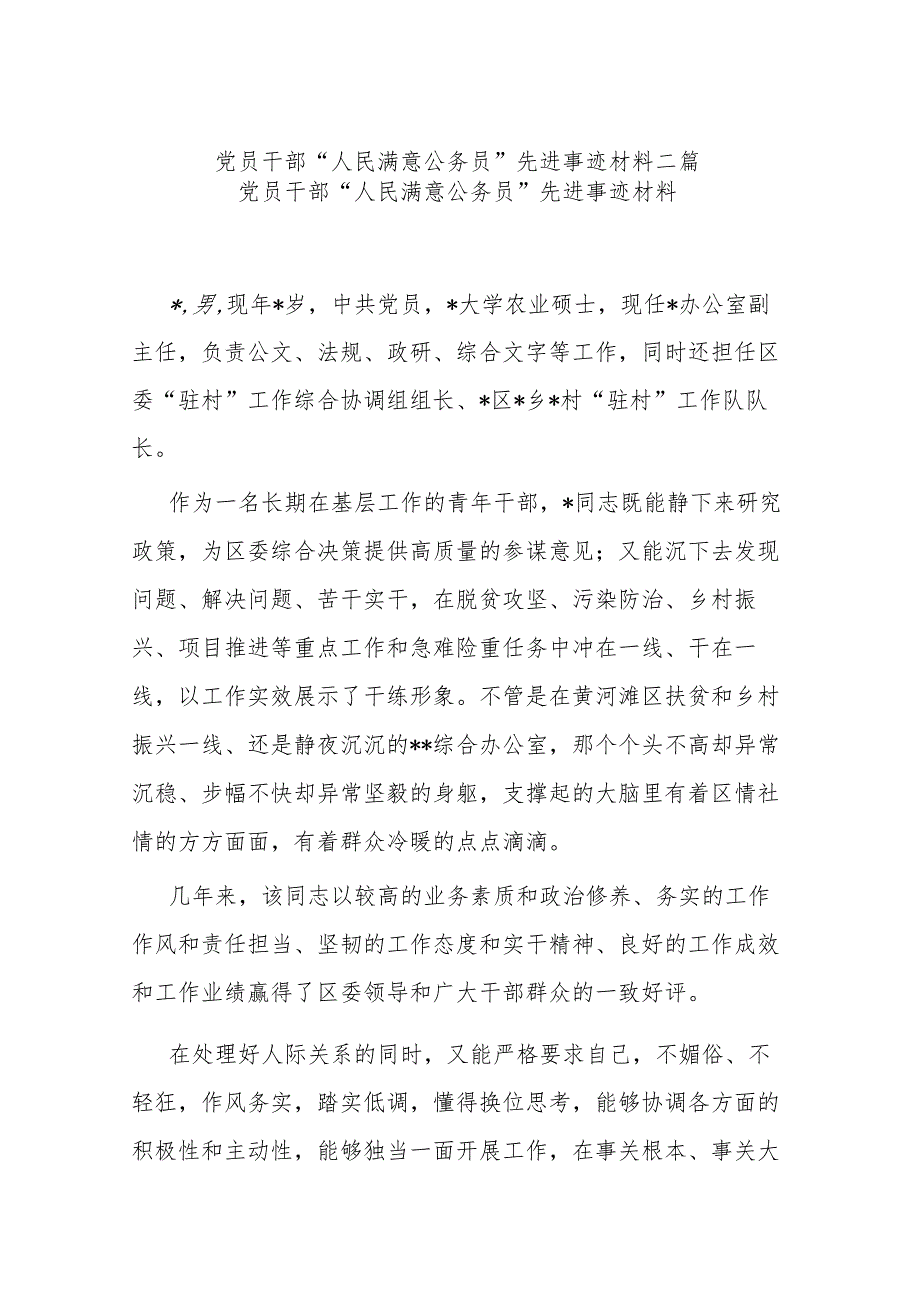 党员干部“人民满意公务员”先进事迹材料二篇
党员干部“人民满意公务员”先进事迹材料
*,男,现年*岁，中共党员，*大学农业硕士，现任*办公室副
主任，负责公文、法规、政研、综合文字等工作，同时还担任区
委“驻村”工作综合协调组组长、*区*乡*村“驻村”工作队队
长。
作为一名长期在基层工作的青年干部，*同志既能静下来研究
政策，为区委综合决策提供高质量的参谋意见；又能沉下去发现
问题、解决问题、苦干实干，在脱贫攻坚、污染防治、乡村振
兴、项目推进等重点工作和急难险重任务中冲在一线、干在一
线，以工作实效展示了干练形象。不管是在黄河滩区扶贫和乡村
振兴一线、还是静夜沉沉的**综合办公室，那个个头不高却异常
沉稳、步幅不快却异常坚毅的身躯，支撑起的大脑里有着区情社
情的方方面面，有着群众冷暖的点点滴滴。
几年来，该同志以较高的业务素质和政治修养、务实的工作
作风和责任担当、坚韧的工作态度和实干精神、良好的工作成效
和工作业绩赢得了区委领导和广大干部群众的一致好评。
在处理好人际关系的同时，又能严格要求自己，不媚俗、不
轻狂，作风务实，踏实低调，懂得换位思考，能够协调各方面的
积极性和主动性，能够独当一面开展工作，在事关根本、事关大